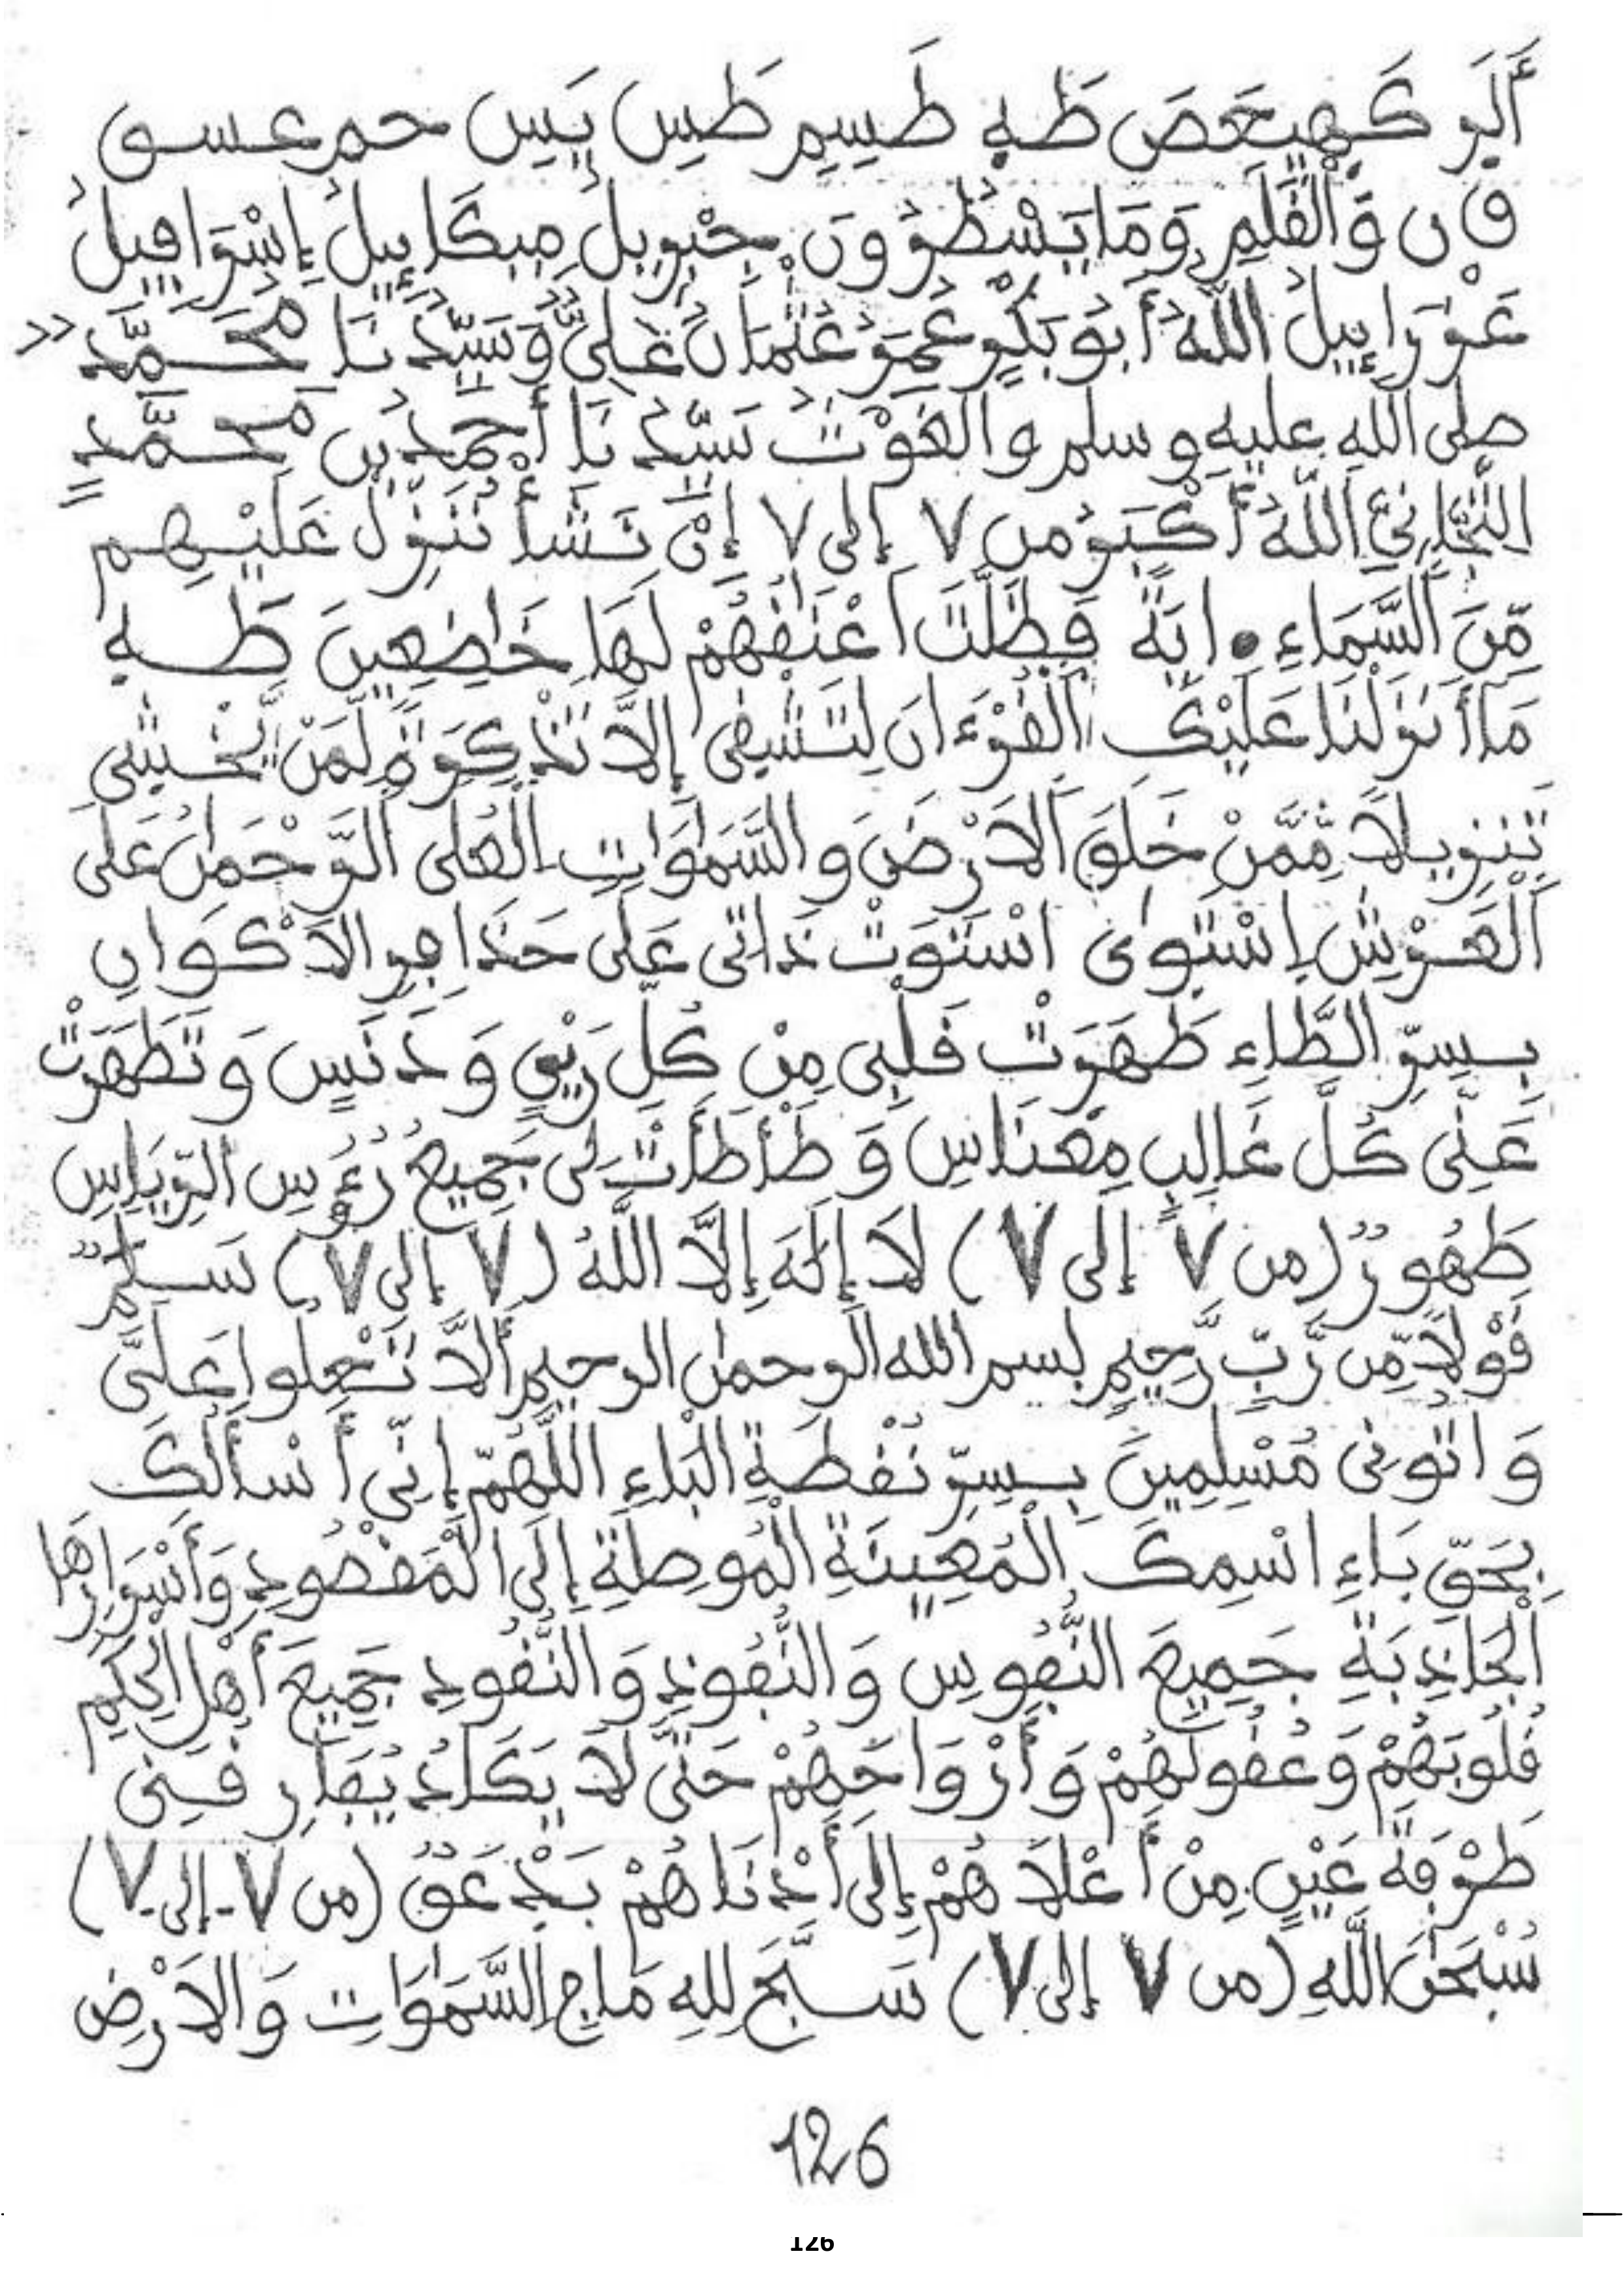 أَلَر كَهِيعَصَ طَهِ طَسِمِ طَسِ يَسِ حم عسق
ق ن وَالْقَلَمِ وَمَا يَسْطُرُونَ جِبْرِيلُ مِيكَايِيلُ إِسْرَافِيلُ
عَزْرَايِيلُ اللَّهُ أَبُو بَكْرٍ عُمَرُ عُثْمَانُ عَلِيٌّ وَسَيِّدُنَا مُحَمَّدٌ
صلى الله عليه وسلم والْغَوْثُ سَيِّدُنَا أَحْمَدُ بْنِ مُحَمَّدٍ
التِّجَانِيِّ اللَّهُ أَكْبَرُ من ٧ إلى ٧ إِنْ نَشَأْ نُنَزِّلْ عَلَيْهِم
مِّنَ السَّمَاءِ ءايَةً فَظَلَّتَ اَعْنَٰقُهُمْ لَهَا خَاضِعِينَ طَهِ
مَا أَنزَلْنَا عَلَيْكَ اَلْقُرْءَانَ لِتَشْقَى إِلَّا تَذْكِرَةً لِّمَنْ يَّخْشَى
تَنزِيلاً مِّمَّنْ خَلَقَ اَلاَرْضَ والسَّمَٰوَاتِ الْعُلَى الرَّحْمَٰنُ عَلَى
اَلْعَرْشِ اِسْتَوَىٰ اسْتَوَتْ ذَاتِى عَلَى حَذَافِرِ الاَكْوَانِ
بِسِرِّ الطَّاءِ طَهَرَتْ قَلْبِى مِنْ كُلِّ رَيْقٍ وَدَنَسٍ وَتَطَهَرَتْ
عَنِّى كُلَّ غَالِبِ مِعْنَاسِ وَطَأْطَأَتْ لِى جَمِيعُ رُءُوسِ الرِّيَاسِ
طَهُورٌ (من ٧ إلى ٧) لاَ إِلَٰهَ إِلاَّ اللَّهُ (٧ إلى ٧) سَلَٰمٌ
قَوْلاً مِّن رَّبٍّ رَّحِيمٍ بسم الله الرحمٰن الرحيم أَلاَّ تَعْلُوا عَلَىَّ
وَاتُونِى مُسْلِمِينَ بِسِرِّ نُقْطَةِ الْبَاءِ اللَّهُمَّ إِنِّى أَسْأَلُكَ
بِحَقِّ بَاءِ اسْمِكَ الْمُعِينَةِ الْمُوصِلَةِ إِلَى الْمَقْصُودِ وَأَسْرَارِهَا
اَلْجَاذِبَةِ جَمِيعَ النُّفُوسِ وَالنُّفُوذِ وَالنُّقُودِ جَمِيعَ أَهْلِ الْحِكَمِ
قُلُوبَهُمْ وَعُقُولَهُمْ وَأَرْوَاحَهُمْ حَتَّى لاَ يَكَادُ يُفَارِقُنِى
طَرْفَةَ عَيْنٍ مِنْ أَعْلاَهُمْ إِلَى أَدْنَاهُمْ بَدْعَقٌ (من ٧ - إلى ٧)
سُبْحَٰنَ اللَّهِ (من ٧ إلى ٧) سَبَّحَ لِلهِ مَا فِى السَّمَٰوَاتِ وَالاَرْضِ
126
126